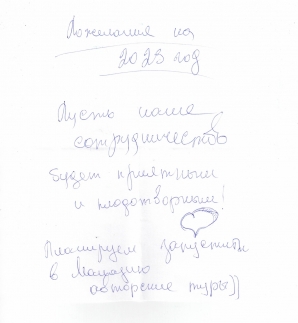 Пожелания на
2023 год
Пусть наше
сотрудничество
будет приятным
и плодотворным!
Планируем запустить
в Малазию
авторские туры))